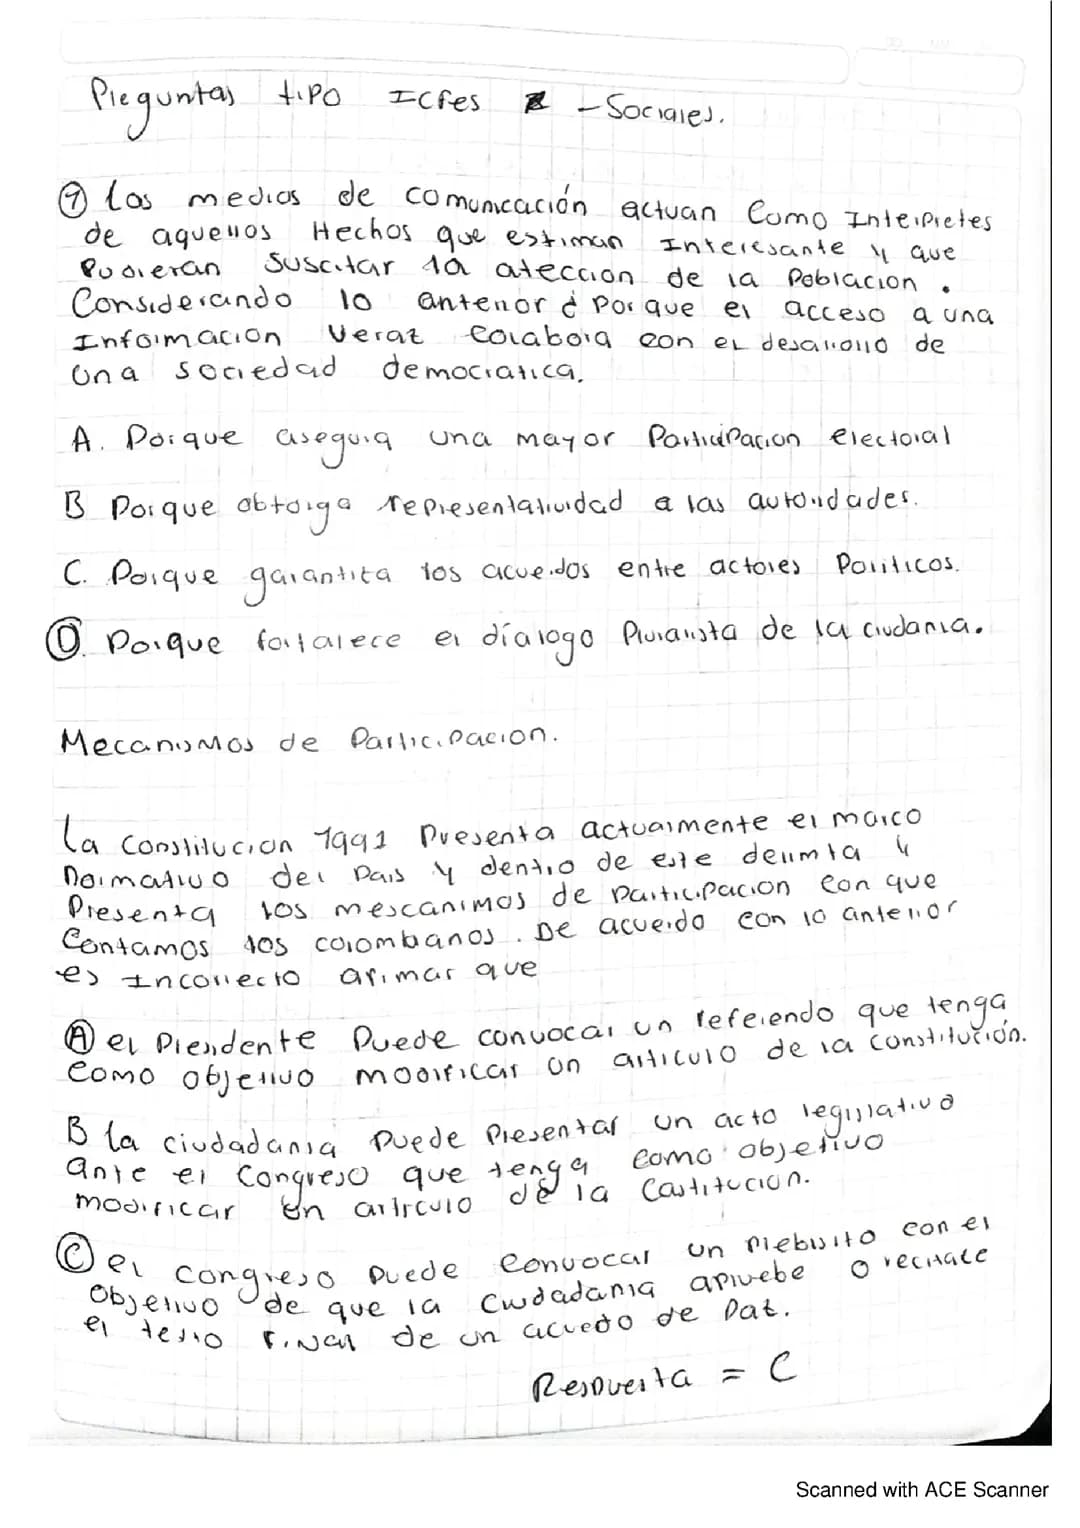 Preguntas tipo Icfes - Sociales.
① Los medios de comunicación actuan Como Interpretes
de aquellos Hechos que estiman Interesante y que
Pudieran suscitar la ateccion de la Poblacion.
Considerando lo anterior ¿ Por que el acceso a una
Informacion Veraz Colabora con el desarrollo de
Una sociedad democratica.
A. Porque asegura una mayor Participacion electoral
B Porque obtorga representatividad a las autoridades.
C. Porque garantiza los acuerdos entre actores Politicos.
D. Porque fortalece el díalogo Pluralista de la ciudania.
Mecanismos de Participacion.
La Constitucion 1991 Presenta actualmente el marco
Normativo del Pais y dentro de este delimta y
Presenta los mescanimos de Participacion Con que
Contamos los colombanos. De acuerdo con lo anterior
es Incorrecto afimar que
A el Presidente Puede convocar un referendo que tenga
Como objetivo modificar un articulo de la constitución.
B la ciudadania Puede Presentar un acto legislativo
ante el Congreso que tenga como objetivo
modificar un artrculo de la Castitucion.
C el congreso Puede Convocar un Plebisito con el
Objetivo de que la Ciudadania apruebe o rechace
el texto Final de un acuedo de Paz.
Respuesta = C
Scanned with ACE Scanner